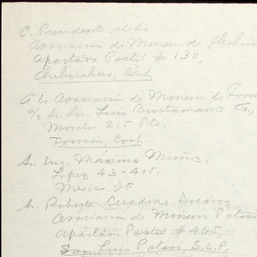 C. Presidente de la
Asociación de Mineros de Chihua
Apartado Postal # 130,
Chihuahua, Chih
A la Asociación de Mineros de Torre
% Sr. Dn. Luis Bustamante G,
Morelos 215 Pte,
Torreón, Coah
Sr. Ing. Máximo Muñoz
López 43-405,
México DF
Sr. Roberto Cuadros Suárez
Asociación de Mineros Potosi
Apartado Postal # 465,
San Luis Potosí, S.L.P.